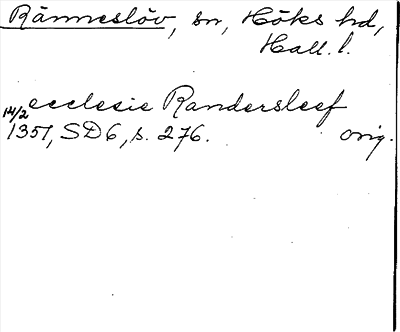 Ränneslöv, sn, Höks hd,
Hall. l.
ecclesie Randersleef
14/2 1351, SD6, s. 276. orig.